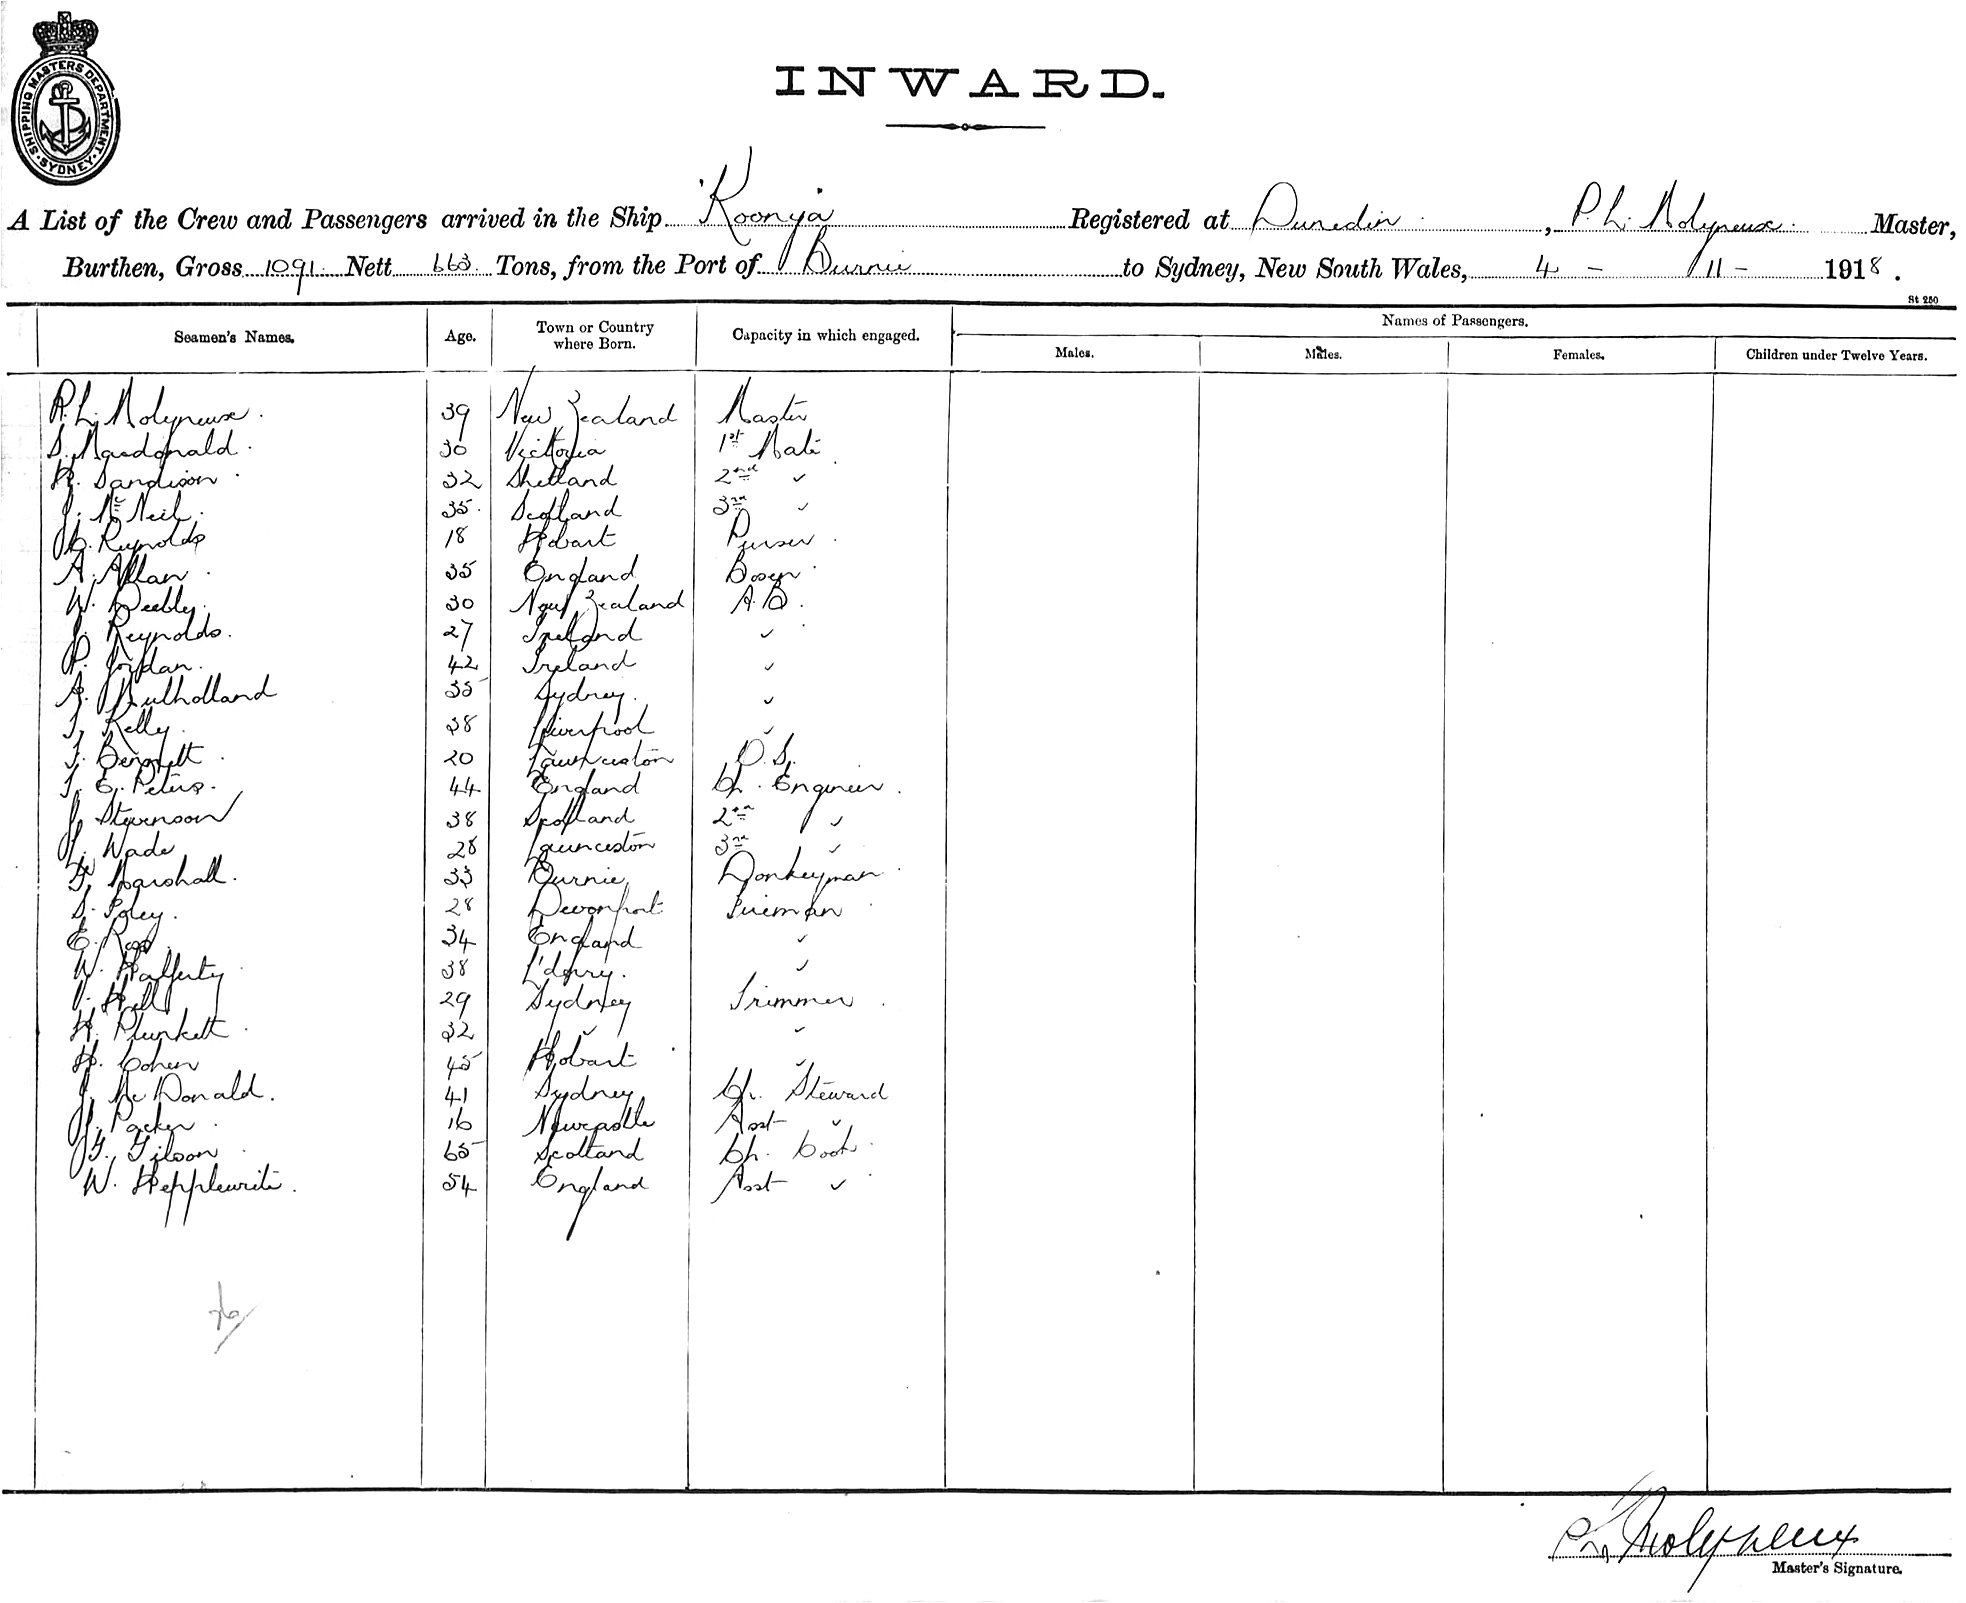 SHIPPING MASTERS DEPARTMENT SYDNEY
INWARD.
A List of the Crew and Passengers arrived in the Ship 'Koonya' Registered at Dunedin, P. L. Molyneux. Master,
Burthen, Gross 1091 Nett 663 Tons, from the Port of Burnie to Sydney, New South Wales, 4 - 11 - 1918.
St 250
Seamen's Names. Age. Town or Country where Born. Capacity in which engaged. Names of Passengers.
Males. Males. Females. Children under Twelve Years.
P. L. Molyneux. 39 New Zealand Master
S. Macdonald. 30 Victoria 1st Mate
Sandison 32 Shetland 2nd "
J. McNeil. 35 Scotland 3rd "
Reynolds 18 Hobart Purser
A. Allan 35 England Bosen
W. Beebly. 30 New Zealand A.B.
J. Reynolds. 27 Ireland "
P. Jordan. 42 Ireland "
A. Mulholland 35 Sydney. "
T. Kelly. 38 Liverpool "
T. Bennett. 20 Launceston O.S.
T. E. Peters. 44 England Ch. Engineer.
J. Stevenson 38 Scotland 2nd "
J. Wade 28 Launceston 3rd "
F. Marshall. 33 Burnie Donkeyman
S. Foley. 28 Devonport Fireman
E. Ross 34 England "
W. Hafferty 38 L'derry. "
J. Hill 29 Sydney Trimmer
H. Plunkett 32 " "
H. Cohen 45 Hobart "
J. McDonald. 41 Sydney Ch. Steward
J. Packer 16 Newcastle Asst "
Gilson 65 Scotland Ch. Cook
W. Hepplewrite. 54 England Asst "
26
P L Molyneux
Master's Signature.